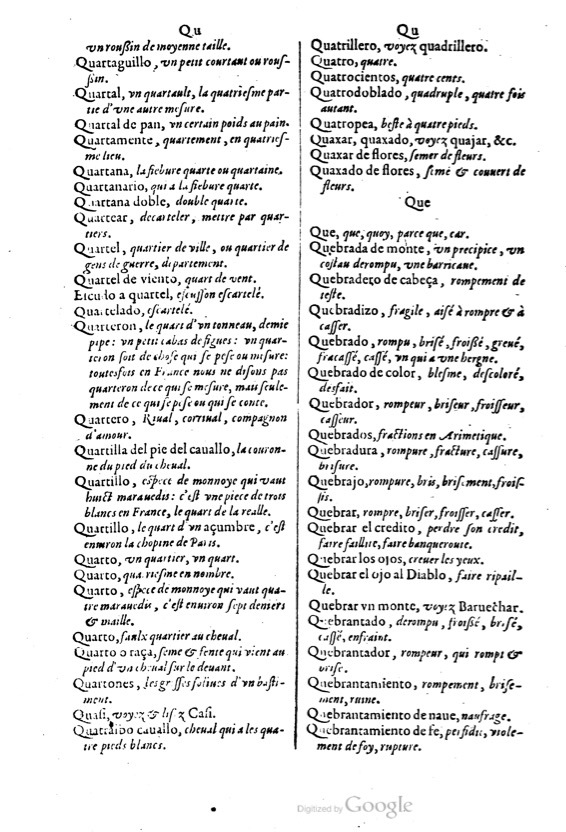 Qu
vn roußin de moyenne taille.
Quartaguillo, vn petit courtaut ou rous-
ßin.
Quartal, vn quartault, la quatriesme par-
tie d'vne autre mesure.
Quartal de pan, vn certain poids au pain.
Quartamente, quartement, en quatries-
me lieu.
Quartana, la fiebure quarte ou quartaine.
Quartanario, qui a la fiebure quarte.
Quartana doble, double quarte.
Quartear, decarteler, mettre par quar-
tiers.
Quartel, quartier de ville, ou quartier de
gens de guerre, departement.
Quartel de viento, quart de vent.
Escudo a quartel, escusson escartelé.
Quartelado, escartelé.
Quarteron, le quart d'vn tonneau, demie
pipe: vn petit cabas de figues: vn quar-
teron soit de chose qui se pese ou mesure:
toutesfois en France nous ne disons pas
quarteron de ce qui se mesure, mais seule-
ment de ce qui se pise ou qui se conte.
Quartero, Riual, corriual, compagnon
d'amour.
Quartilla del pie del cauallo, la couron-
ne du pied du cheual.
Quartillo, espece de monnoye qui vaut
huict marauedis: c'est vne piece de trois
blancs en France, le quart de la realle.
Quartillo, le quart d'vn açumbre, c'est
enuiron la chopine de Paris.
Quarto, vn quartier, vn quart.
Quarto, quatriesme en nombre.
Quarto, espece de monnoye qui vaut qua-
tre marauedis, c'est enuiron sept deniers
& maille.
Quarto, faulx quartier au cheual.
Quarto o raça, seme & fente qui vient au
pied d'vn cheual sur le deuant.
Quartones, les grosses soliues d'vn basti-
ment.
Quasi, voyez & lisez Casi.
Quatralbo cauallo, cheual qui a les qua-
tre pieds blancs.
Qu
Quatrillero, voyez quadrillero.
Quatro, quatre.
Quatrocientos, quatre cents.
Quatrodoblado, quadruple, quatre fois
autant.
Quatropea, beste à quatre pieds.
Quaxar, quaxado, voyez quajar, &c.
Quaxar de flores, semer de fleurs.
Quaxado de flores, semé & couuert de
fleurs.
Que
Que, que, quoy, parce que, car.
Quebrada de monte, vn precipice, vn
costau derompu, vne barricaue.
Quebradero de cabeça, rompement de
teste.
Quebradizo, fragile, aisé à rompre & à
casser.
Quebrado, rompu, brisé, froißé, greué,
fracassé, cassé, vn qui a vne hergne.
Quebrado de color, blesme, descoloré,
desfait.
Quebrador, rompeur, briseur, froisseur,
casseur.
Quebrados, fractions en Arimetique.
Quebradura, rompure, fracture, cassure,
brisure.
Quebrajo, rompure, bris, brisement, frois-
sis.
Quebrar, rompre, briser, froisser, casser.
Quebrar el credito, perdre son credit,
faire faillite, faire banqueroute.
Quebrar los ojos, creuer les yeux.
Quebrar el ojo al Diablo, faire ripail-
le.
Quebrar vn monte, voyez Baruechar.
Quebrantado, derompu, froißé, brisé,
cassé, enfraint.
Quebrantador, rompeur, qui rompt &
brise.
Quebrantamiento, rompement, brise-
ment, ruine.
Quebrantamiento de naue, naufrage.
Quebrantamiento de fe, perfidie, viole-
ment de foy, rupture.
Digitized by Google